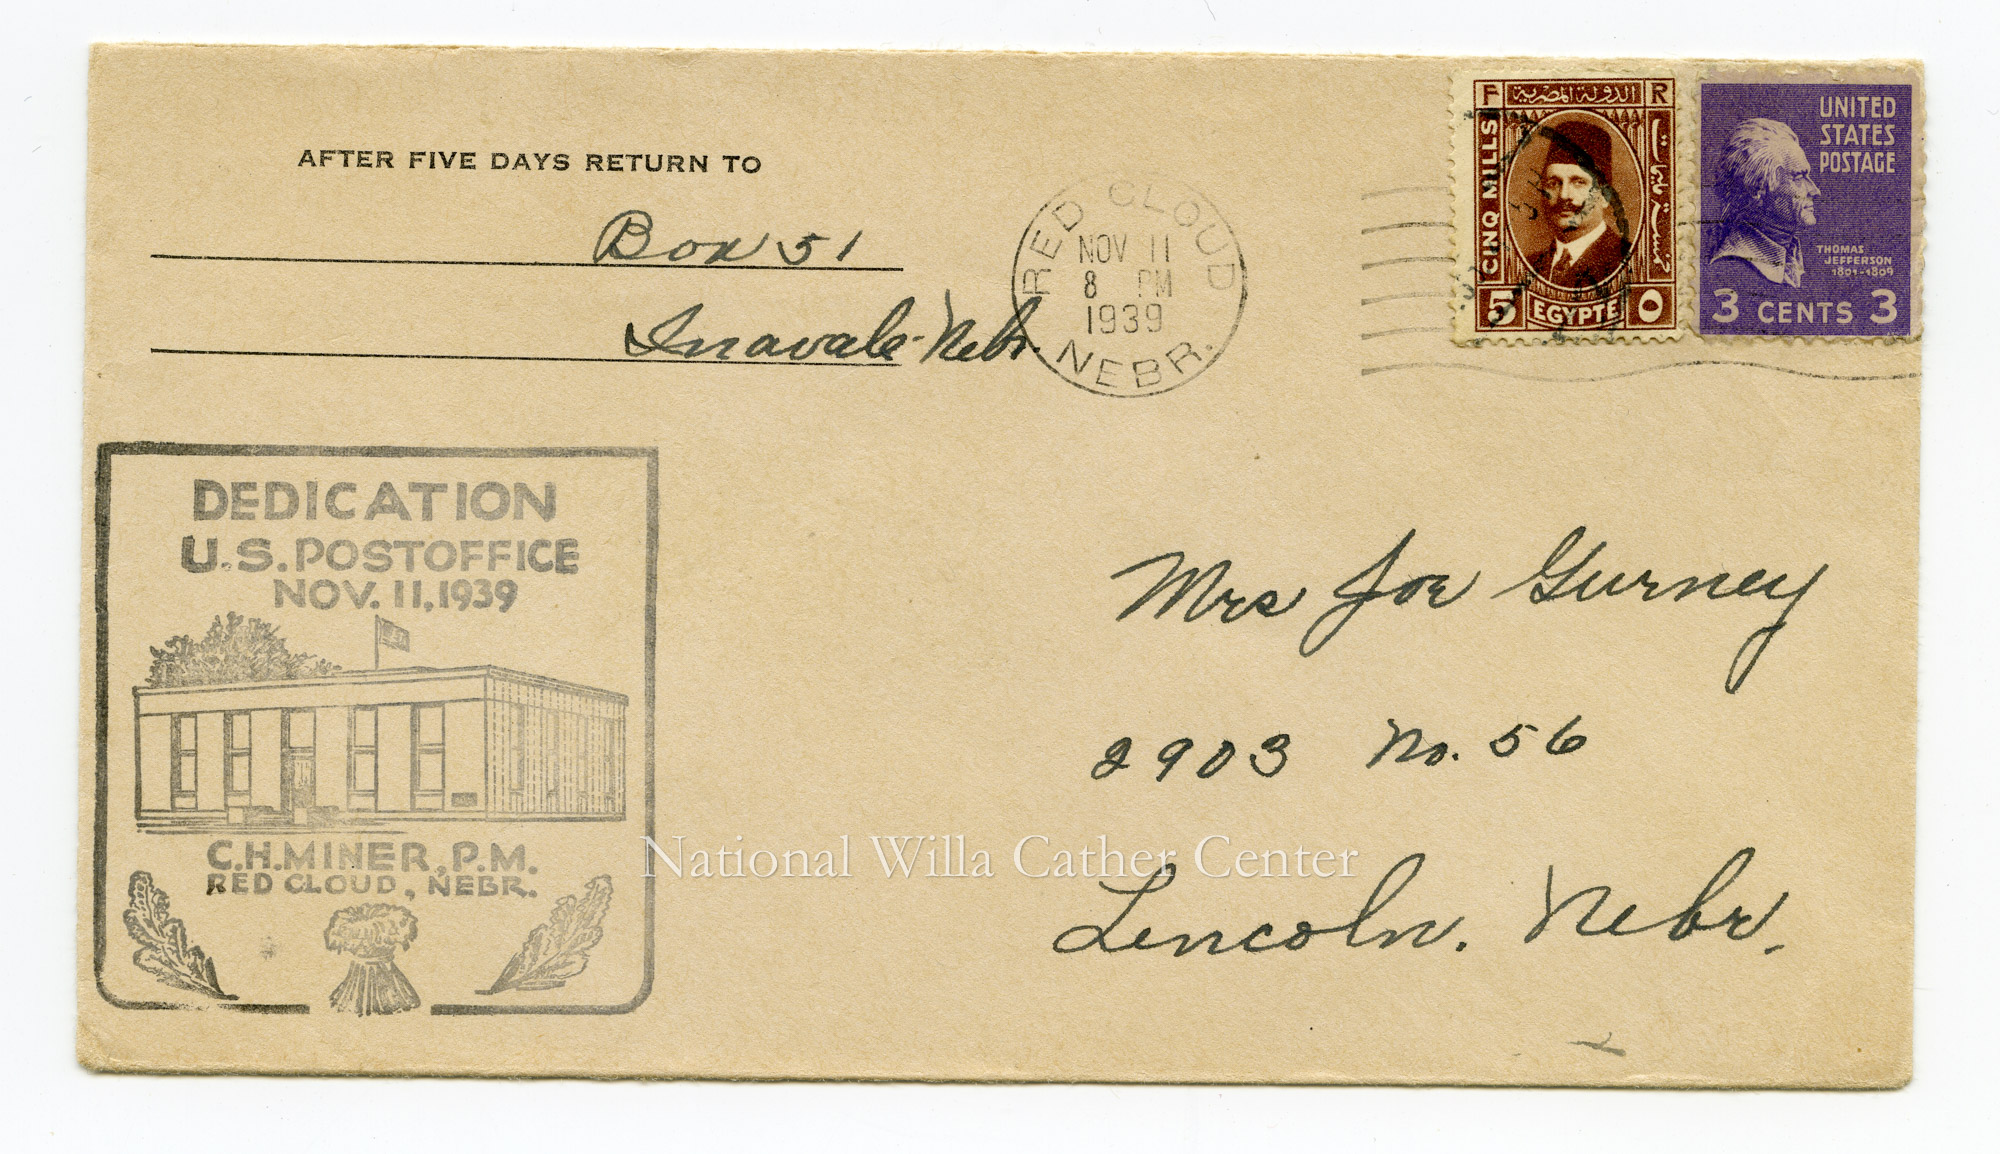 AFTER FIVE DAYS RETURN TO
Box 51
Inavale-Nebr.
RED CLOUD
NOV 11
8 PM
1939
NEBR.
F الدولة المصرية R
CINQ MILLS
خمسة مليمات
5 EGYPTE 0
UNITED
STATES
POSTAGE
THOMAS
JEFFERSON
1801-1809
3 CENTS 3
DEDICATION
U.S. POSTOFFICE
NOV. 11, 1939
C.H. MINER, P.M.
RED CLOUD, NEBR.
Mrs Joe Gurney
2903 No. 56
Lincoln. Nebr.
National Willa Cather Center